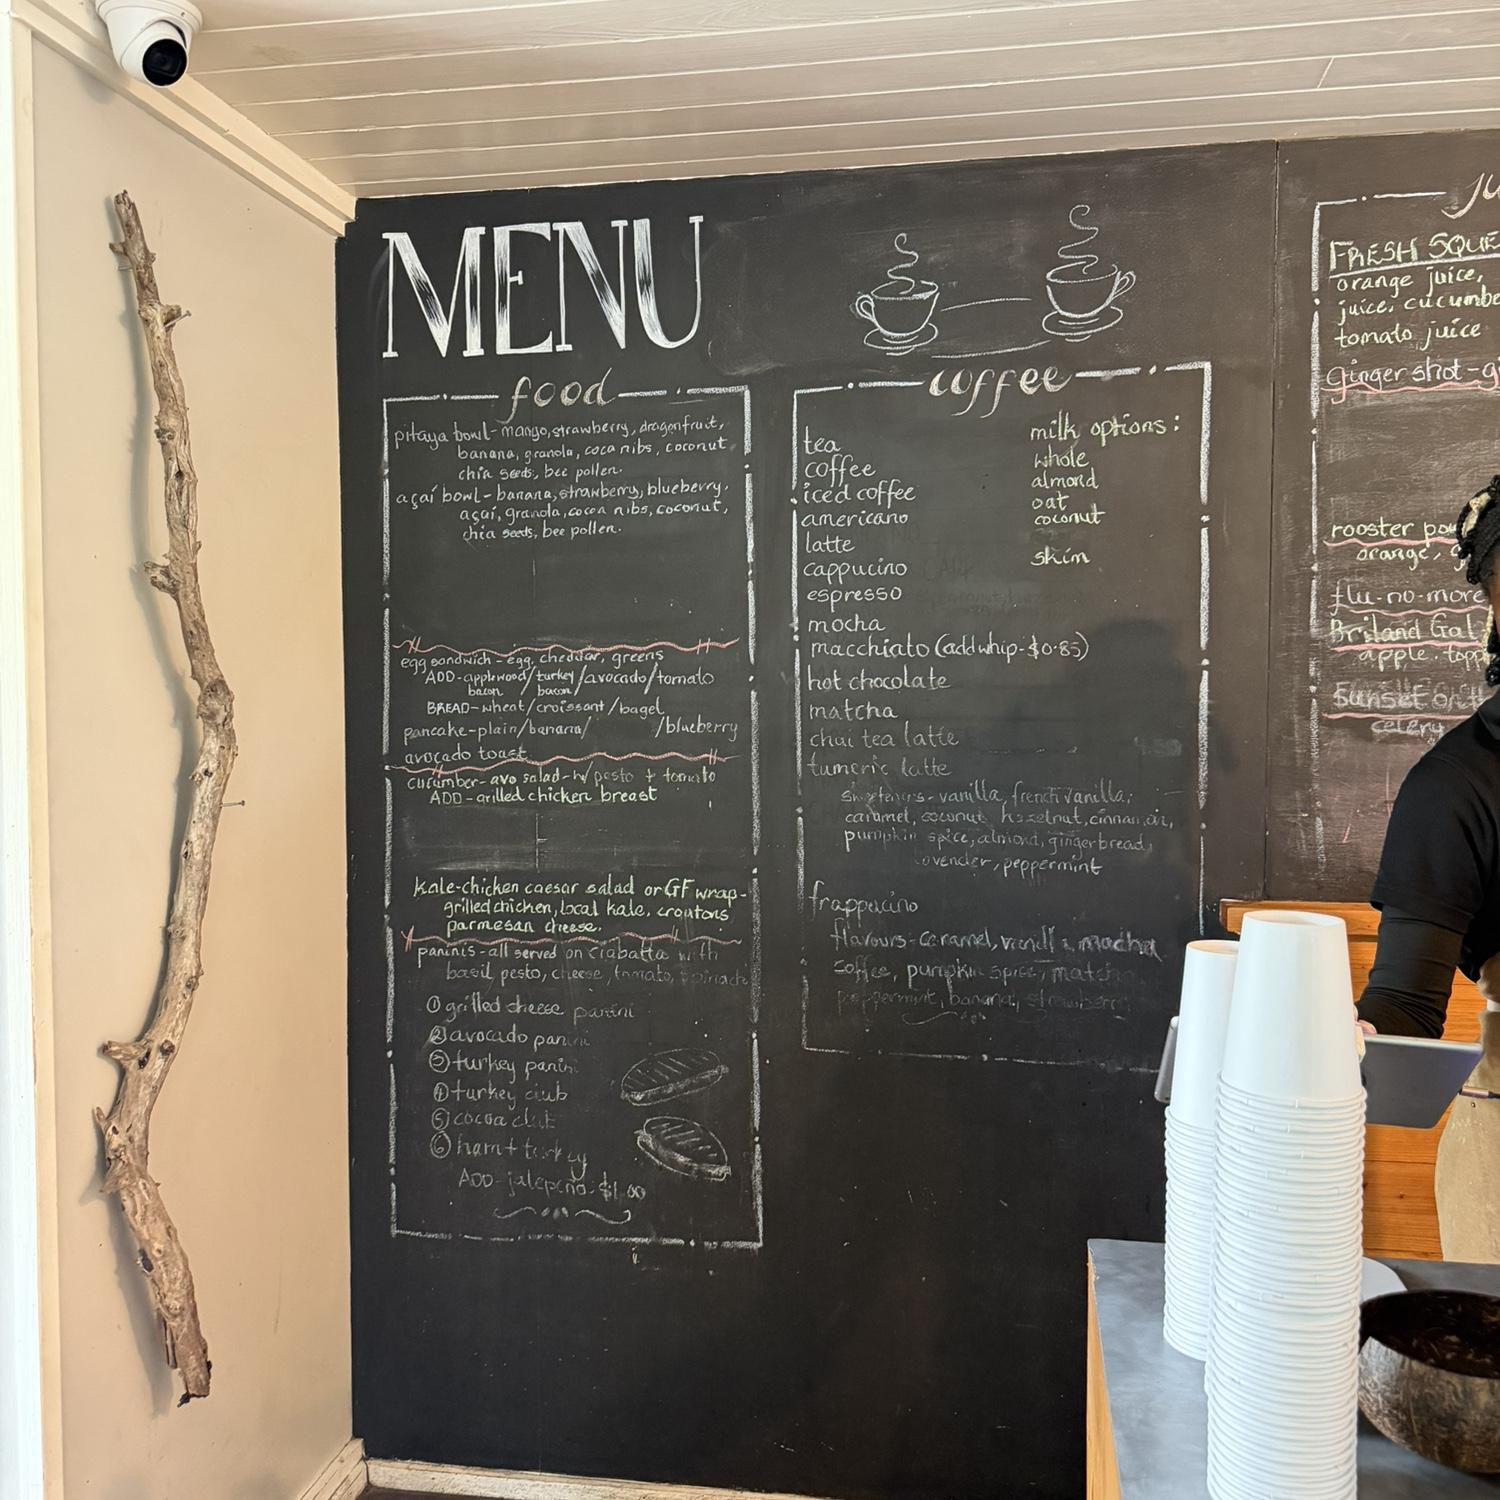 MENU
food
pitaya bowl - mango, strawberry, dragonfruit,
banana, granola, coca nibs, coconut
chia seeds, bee pollen.
açaí bowl - banana, strawberry, blueberry.
açaí, granola, cocoa nibs, coconut,
chia seeds, bee pollen.
egg sandwich - egg, cheddar, greens
ADD - applewood bacon / turkey bacon / avocado / tomato
BREAD - wheat / croissant / bagel
pancake - plain / banana / /blueberry
avocado toast
cucumber - avo salad - w/ pesto + tomato
ADD - grilled chicken breast
kale - chicken caesar salad or GF wrap -
grilled chicken, local kale, croutons
parmesan cheese.
paninis - all served on ciabatta with
basil pesto, cheese, tomato, spinach
① grilled cheese panini
② avocado panini
③ turkey panini
④ turkey club
⑤ cocoa club
⑥ ham + turkey
ADD - jalepeño. $1.00
coffee
tea
coffee
iced coffee
americano
latte
cappucino
espresso
mocha
macchiato (add whip - $0.85)
hot chocolate
matcha
chai tea latte
tumeric latte
sweeteners - vanilla, french vanilla,
caramel, coconut, hazelnut, cinnamon,
pumpkin spice, almond, gingerbread,
lavender, peppermint
frappucino
flavours - caramel, vanilla, mocha
coffee, pumpkin spice, matcha
peppermint, banana, strawberry
milk options:
whole
almond
oat
coconut
skim
FRESH
orange juice,
juice, cucumber
tomato juice
ginger shot -
rooster
orange,
flu-no-more
Briland Gal
apple.
Sunset on
celery